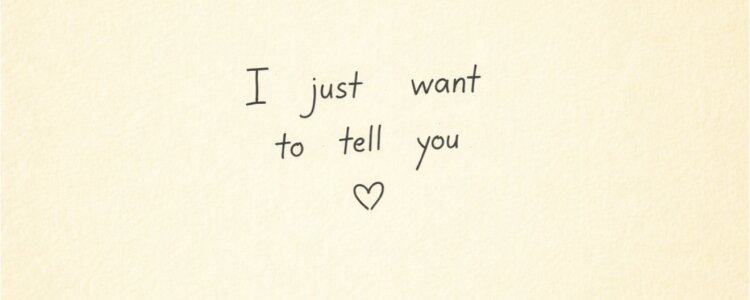 I just want
to tell you
♡